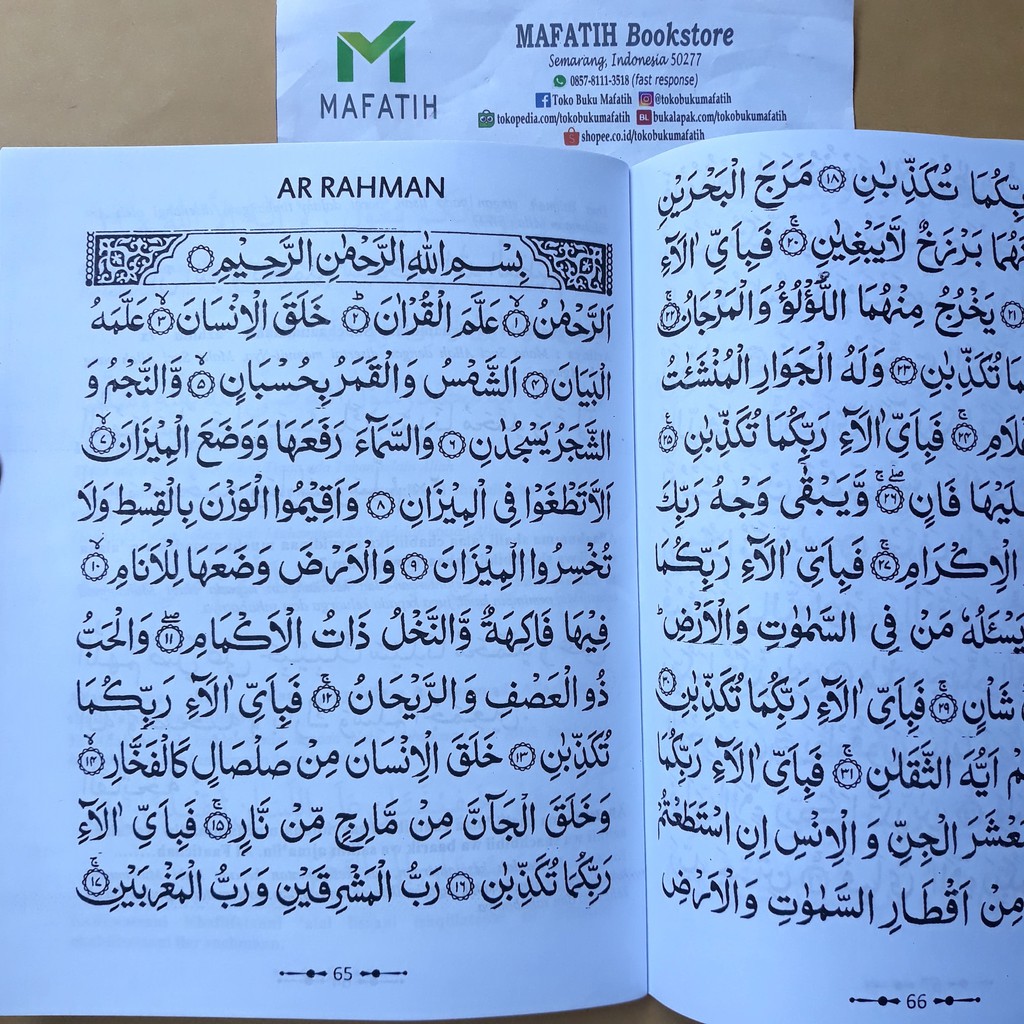 MAFATIH
MAFATIH Bookstore
Semarang, Indonesia 50277
0857-8111-3518 (fast response)
Toko Buku Mafatih @tokobukumafatih
tokopedia.com/tokobukumafatih BL bukalapak.com/tokobukumafatih
shopee.co.id/tokobukumafatih
AR RAHMAN
بِسْمِ اللهِ الرَّحْمٰنِ الرَّحِيْمِ
اَلرَّحْمٰنُ ۙ ١ عَلَّمَ الْقُرْاٰنَ ۗ ٢ خَلَقَ الْاِنْسَانَ ۙ ٣ عَلَّمَهُ
الْبَيَانَ ٤ اَلشَّمْسُ وَالْقَمَرُ بِحُسْبَانٍ ۙ ٥ وَّالنَّجْمُ وَ
الشَّجَرُ يَسْجُدٰنِ ٦ وَالسَّمَآءَ رَفَعَهَا وَوَضَعَ الْمِيْزَانَ ۙ ٧
اَلَّا تَطْغَوْا فِى الْمِيْزَانِ ٨ وَاَقِيْمُوا الْوَزْنَ بِالْقِسْطِ وَلَا
تُخْسِرُوا الْمِيْزَانَ ٩ وَالْاَرْضَ وَضَعَهَا لِلْاَنَامِ ۙ ١٠
فِيْهَا فَاكِهَةٌ وَّالنَّخْلُ ذَاتُ الْاَكْمَامِ ۖ ١١ وَالْحَبُّ
ذُو الْعَصْفِ وَالرَّيْحَانُ ۚ ١٢ فَبِاَيِّ اٰلَآءِ رَبِّكُمَا
تُكَذِّبٰنِ ١٣ خَلَقَ الْاِنْسَانَ مِنْ صَلْصَالٍ كَالْفَخَّارِ ۙ ١٤
وَخَلَقَ الْجَآنَّ مِنْ مَّارِجٍ مِّنْ نَّارٍ ۚ ١٥ فَبِاَيِّ اٰلَآءِ
رَبِّكُمَا تُكَذِّبٰنِ ١٦ رَبُّ الْمَشْرِقَيْنِ وَرَبُّ الْمَغْرِبَيْنِ ۚ ١٧
65
تُكَذِّبٰنِ ١٨ مَرَجَ الْبَحْرَيْنِ
بَرْزَخٌ لَّا يَبْغِيٰنِ ۚ ٢٠ فَبِاَيِّ اٰلَآءِ
٢١ يَخْرُجُ مِنْهُمَا اللُّؤْلُؤُ وَالْمَرْجَانُ ۚ ٢٢
تُكَذِّبٰنِ ٢٣ وَلَهُ الْجَوَارِ الْمُنْشَئٰتُ
ۚ ٢٤ فَبِاَيِّ اٰلَآءِ رَبِّكُمَا تُكَذِّبٰنِ ۚ ٢٥
فَانٍ ۖ ٢٦ وَّيَبْقٰى وَجْهُ رَبِّكَ
الْاِكْرَامِ ۚ ٢٧ فَبِاَيِّ اٰلَآءِ رَبِّكُمَا
يَسْـَٔلُهٗ مَنْ فِى السَّمٰوٰتِ وَالْاَرْضِ ۗ
شَأْنٍ ۚ ٢٩ فَبِاَيِّ اٰلَآءِ رَبِّكُمَا تُكَذِّبٰنِ ٣٠
اَيُّهَ الثَّقَلٰنِ ۚ ٣١ فَبِاَيِّ اٰلَآءِ رَبِّكُمَا
الْجِنِّ وَالْاِنْسِ اِنِ اسْتَطَعْتُمْ
مِنْ اَقْطَارِ السَّمٰوٰتِ وَالْاَرْضِ
66